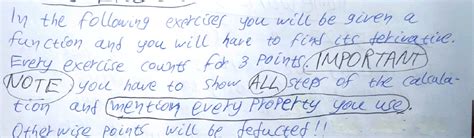 In the following exercises you will be given a
function and you will have to find its derivative.
Every exercise counts for 3 points. IMPORTANT
NOTE you have to show ALL steps of the calcula-
tion and mention every property you use.
Otherwise points will be deducted!!